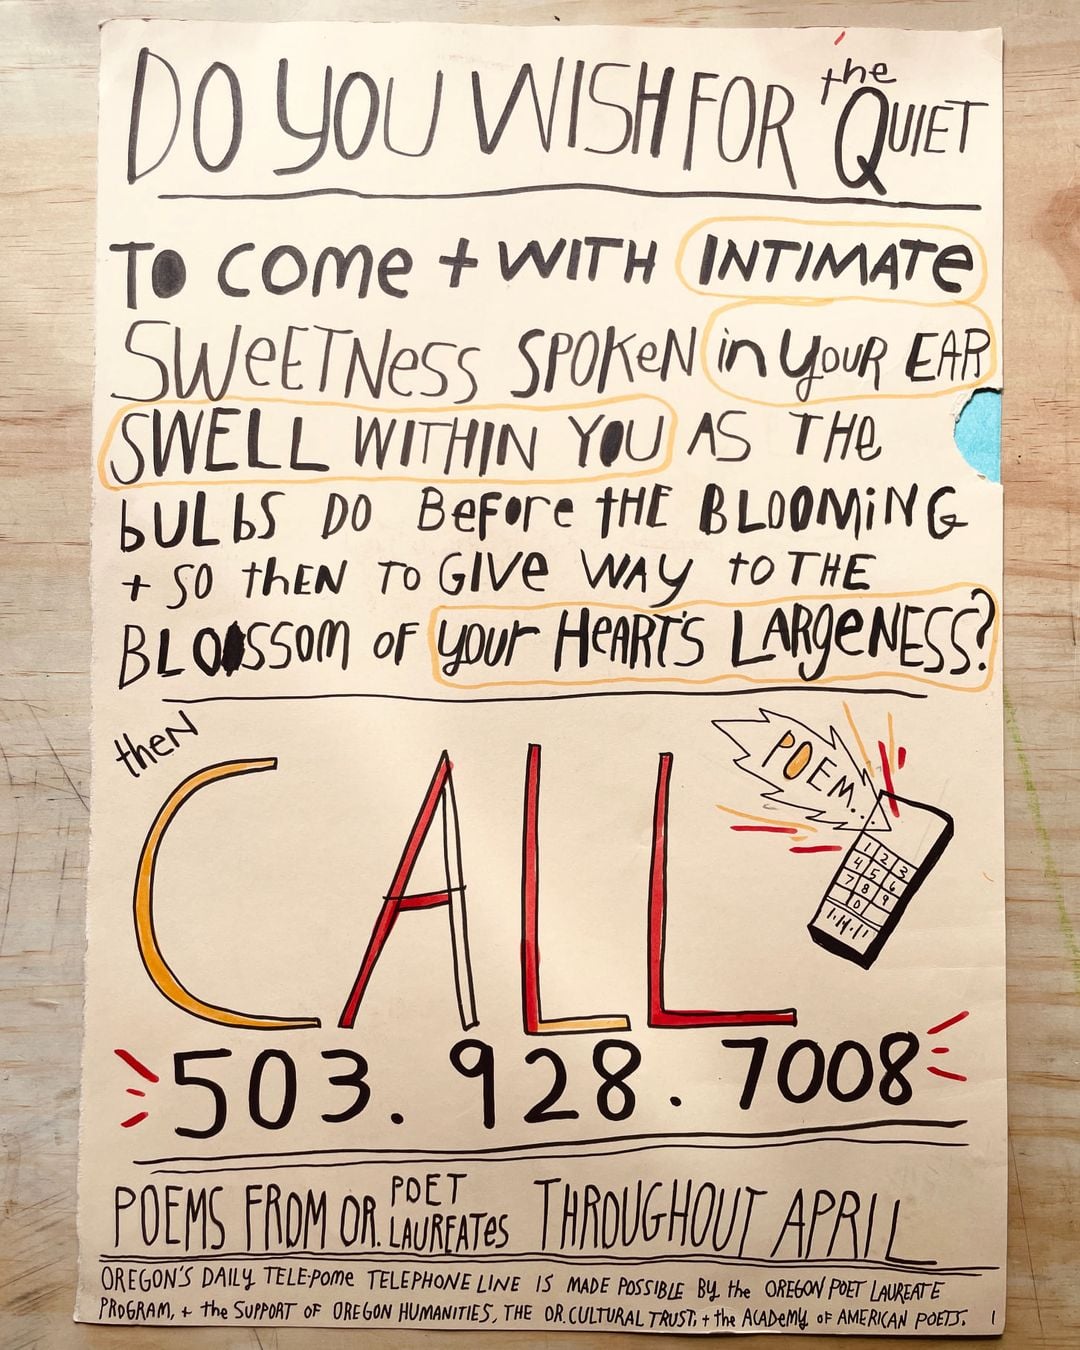 DO YOU WISH FOR the QUIET
TO COME + WITH INTIMATE
SWEETNESS SPOKEN in YOUR EAR
SWELL WITHIN YOU AS THE
bULbS DO BEFORE THE BLOOMiNG
+ SO thEN TO GIVE WAY to THE
BLOSSOM OF your HEART'S LARGENESS?
then
CALL
POEM...
1 2 3
4 5 6
7 8 9
0
503.928.7008
POEMS FROM OR. POET LAUREATES THROUGHOUT APRIL
OREGON'S DAILY TELE-POME TELEPHONE LINE IS MADE POSSIBLE BY the OREGON POET LAUREATE
PROGRAM, + the SUPPORT OF OREGON HUMANITIES, THE OR. CULTURAL TRUST, + the ACADEMY OF AMERICAN POETS.